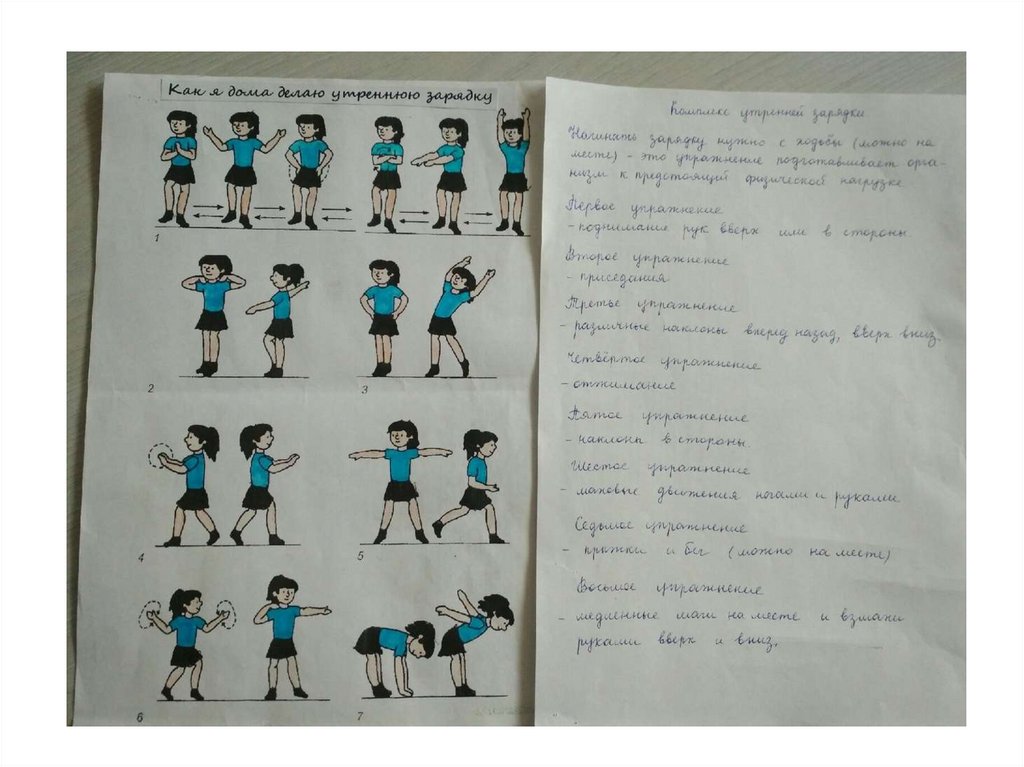 Как я дома делаю утреннюю зарядку
1
2
3
4
5
6
7
Комплекс утренней зарядки
Начинать зарядку нужно с ходьбы (можно на
месте) - это упражнение подготавливает орга-
низм к предстоящий физической нагрузке.
Первое упражнение
- поднимания рук вверх или в стороны.
Второе упражнение
- приседания
Третье упражнение
- различные наклоны вперед назад, вверх вниз.
Четвёртое упражнение
- отжимание
Пятое упражнение
- наклоны в стороны.
Шестое упражнение
- маховые движения ногами и руками
Седьмое упражнение
- прыжки и бег (можно на месте)
Восьмое упражнение
- медленные шаги на месте и взмахи
руками вверх и вниз.